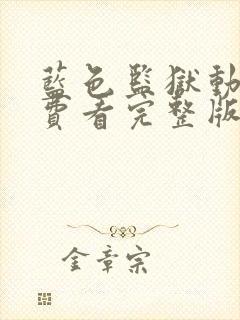 藍色監獄動
費看完整版
金章宗